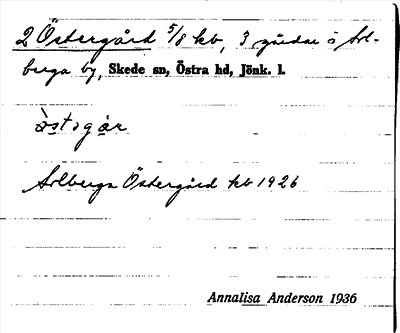 2 Östergård 5/8 kb, 3 gårdar i Arl-
berga by, Skede sn, Östra hd, Jönk. l.
òstsgár
Arlberga Östergård kb 1926
Annalisa Anderson 1936